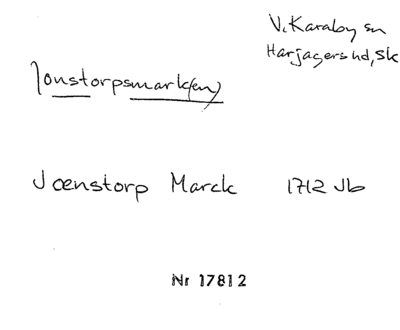 V. Karaby sn
Harjagers hd, Sk
Jonstorpsmark(en)
Joenstorp Marck 1712 Jb
Nr 17812